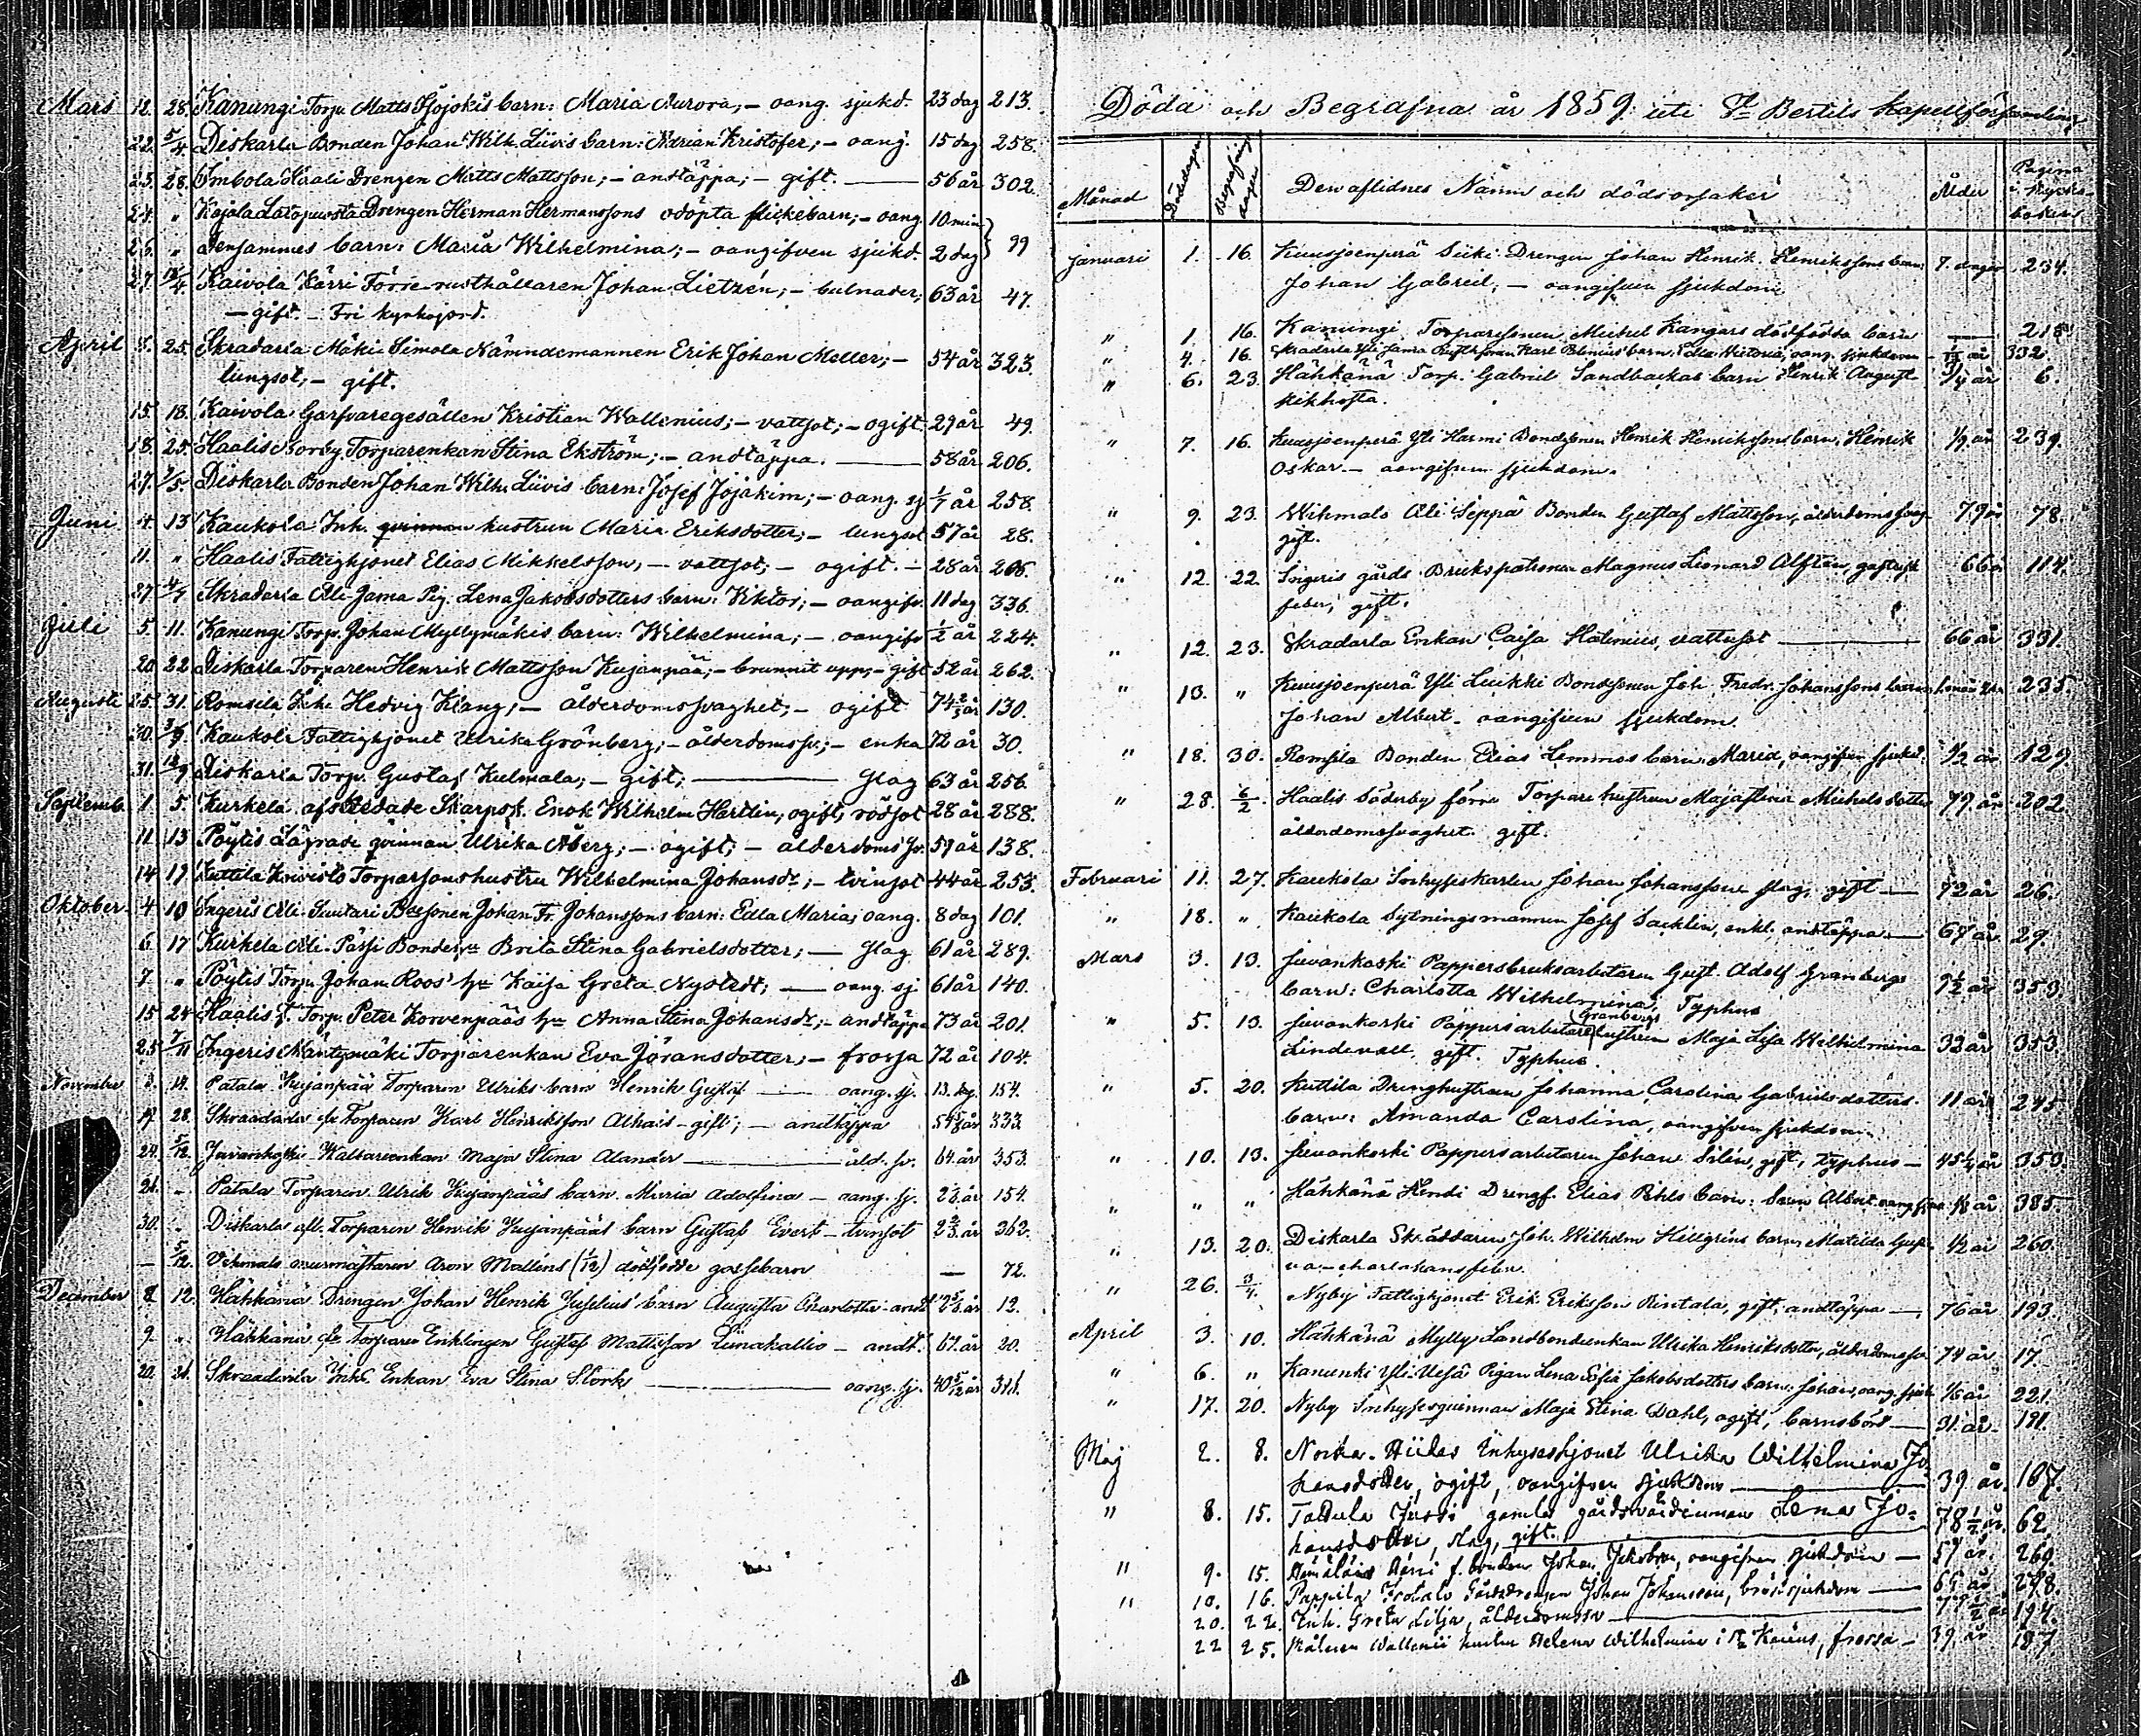 Mars 12. 28. Kanungi Torp. Matts Sjöjokis barn: Maria Aurora; – oang. sjukd. 23 dag 213.
22. 5/4. Diskarla Bonden Johan Wilh. Liivis barn: Adrian Kristofer; – oang. 15 dag 258.
23. 28. Imbola Haali Drengen Matts Mattsson; – andtäppa; – gift. – 56 år 302.
24. " Kojola Latopuosta Drengen Herman Hermanssons odöpta flickebarn; – oang. 10 min
26. " Densammes barn: Maria Wilhelmina; – oangifven sjukd. 2 dag 99
27. 12/4. Kaivola Kärri Förre rusthållaren Johan Lietzén; – bulnader; 63 år 47.
– gift. – Fri kyrkojord.
April 8. 25. Skradarla Mäki Simola Nämndemannen Erik Johan Meller; – 54 år 323.
lungsot; – gift.
15. 18. Kaivola Garfvaregesällen Kristian Wallenius; – vattsot; – ogift. 29 år 49.
18. 25. Haalis Norby Torparenkan Stina Ekström; – andtäppa. – 58 år 206.
27. 1/5. Diskarla Bonden Johan Wilh. Liivis barn: Josef Jojakim; – oang. sj 1/7 år 258.
Juni 4. 13 Kaukola Inh. hustrun Maria Eriksdotter; – lungsot 57 år 28.
11. " Haalis Fattighjonet Elias Mikkelsson, – vattsot; – ogift. – 28 år 208.
27 4/7 Skradarla Ali Jama Pig. Lena Jakobsdotters barn: Viktor; – oangifv. 11 dag 336.
Juli 5. 11. Kanungi Torp. Johan Myllymäkis barn: Wilhelmina; – oangifv 1/2 år 224.
20. 22 Diskarla Torparen Henrik Mattsson Kujanpää; – brunnit upp; – gift 52 år 262.
Augusti 25. 31. Romsila Inh. Hedvig Klang; – ålderdomssvaghet; – ogift 74 2/3 år 130.
30. 3/9. Kaukola Fattighjonet Ulrika Grönberg; – ålderdomssv.; – enka 72 år 30.
31. 12/9 Diskarla Torp. Gustaf Kulmala; – gift; – slag 63 år 256.
Septemb. 1 5. Kurkela afskedade Skarpsk. Enok Wilhelm Hertlin, ogift, rödsot 28 år 288.
11. 13 Pöytis Lägrade qvinnan Ulrika Åberg; – ogift; – ålderdoms sv. 59 år 138.
14 19 Kuttila Knuisto Torparsonshustru Wilhelmina Johansdr; – tvinsot 44 år 253.
Oktober 4 10 Ingeris Ali Suutari Bdesonen Johan Fr. Johanssons barn: Edla Maria, oang. 8 dag 101.
6 17 Kurkela Ali-Pässi Bondehu Brita Stina Gabrielsdotter; – slag 61 år 289.
7 " Pöytis Torp. Johan Roos' hu Kaisa Greta Nystedt; – oang. sj 61 år 140.
15 24 Haalis f. Torp. Peter Korvenpääs hu Anna Stina Johansdr; – andtäppa 73 år 201.
25 7/11 Ingeris Mäntymäki Torparenkan Eva Jöransdotter; – frossa 72 år 104.
November 3. 14. Patala Kujanpää Torparen Ulriks barn Henrik Gustaf – oang. sj. 13. dag. 154.
17 28. Skraadarla f.d. Torparen Karl Henriksson Alhais – gift; – andtäppa 54 år 333
24. 5/12. Juvankoski Maja Stina Alander – åld. sv. 64. år 353.
21. " Patala Torparen Ulrik Kujanpääs barn. Maria Adolfina – oang. sj. år 154.
30. " Diskarla afl. Torparen Henrik Kujanpääs barn Gustaf Evert – tvinsot 2 2/3. år 262.
– 5/12. Vihmalo murmästaren Aron Mallens (1/12) dödfödde gossebarn – 72.
December 8 12. Hähkänä Drengen Johan Henrik Juselius' barn Augusta Charlotta – andt. år 12.
9. " Hähkänä f.d. Torparen Enklingen Gustaf Mattsson Liinakallio – andt. 67. år 20.
20. 26. Skraadarla Inhs. Enkan Eva Stina Störk – oang. sj. 40 5/12 år 311.
Döda och Begrafna år 1859 uti St. Bertils Kapellförsamling
Månad Dödsdagen Begrafningsdagen Den aflidnes Namn och dödsorsaker Ålder Pagina i Kyrkoboken
Januari 1. 16. Kuusjoenperä Siiki Drengen Johan Henrik Henrikssons barn 7. dagar 234.
Johan Gabriel, – oangifven sjukdom
" 1. 16. Kanungi Torparesonen Michel Kangars dödfödda barn – 218.
" 4. 16. Skradarla Yli Jama Karl Blenius barn: Edla Wictoria, oang. sjukdom år 332.
" 6. 23. Hähkänä Torp. Gabriel Sandbackas barn Henrik August 3/4 år 6.
kikhosta.
" 7. 16. Kuusjoenperä Yli Harmi Bondsonen Henrik Henrikssons barn, Henrik 1/2 år 239.
Oskar. – oangifven sjukdom.
" 9. 23. Wihmalo Ali Seppä Bonden Gustaf Mattsson, ålderdomssvag. 79 år 78.
gift.
" 12. 22. Ingeris gårds Brukspatronen Magnus Leonard Alftan, gastrisk 66 år 114.
feber, gift.
" 12. 23. Skradarla Enkan Caisa Halenius, vattusot – 66 år 331.
" 13. " Kuusjoenperä Yli Luikki Bondsonen Joh. Fredr. Johanssons barn 235.
Johan Albert – oangifven sjukdom.
" 18. 30. Romsila Bonden Elias Lemmos barn: Maria, oangifven sjukd. 1/2 år 129.
" 28. 6/2. Haalis Söderby förre Torpare hustrun Majastina Michelsdotter 79 år 202.
ålderdomssvaghet. gift.
Februari 11. 27. Kaukola Inhyseskarlen Johan Johansson slag, gift – 72 år 26.
" 18. " Kaukola Sytningsmannen Josef Sacklin, enkl. andtäppa – 67 år. 29.
Mars 3. 13. Juvankoski Pappersbruksarbetaren Gust. Adolf Granbergs 9 1/2 år 353.
barn: Charlotta Wilhelmina, Typhus
" 5. 13. Juvankoski Pappersarbetare Granbergs hustrun Maja Lisa Wilhelmina 33 år 353.
Lindewall, gift. Typhus.
" 5. 20. Kuttila Drenghustrun Johanna Carolina Gabrielsdotters 11 år 245
barn: Amanda Carolina, oangifven sjukdom.
" 10. 13. Juvankoski Pappersarbetaren Johan Silén, gift, typhus – 45 1/4 år 353.
" " " Hähkänä Hendi Drengf. Elias Pihls barn: Sven Albert oang sjuk. 1/8 år 385.
" 13. 20. Diskarla Skräddaren Joh. Wilhelm Hellgréns barn: Matilda Gusta- 1/2 år 260.
va – charlakansfeber.
" 26. 3/4. Nyby Fattighjonet Erik Eriksson Rintala, gift, andtäppa – 76 år 193.
April 3. 10. Hähkänä Mylly Landbondeenkan Ulrika Henriksdotter, ålderdomssv. 74 år 17.
" 6. " Kanunki Yli-Uesä Pigan Lena Sofia Jakobsdotters barn: Johan, oang. sjuk. 1/6 år 221.
" 17. 20. Nyby Inhysesqvinnan Maja Stina Dahl, ogift, barnsbörd – 31 år. 191.
Maj 2. 8. Norka. Hiides Inhyseshjonet Ulrika Wilhelmina Jo-
hansdotter, ogift, oangifven sjukdom – 39 år. 167.
" 8. 15. Tattula Jussi gamla gårdsvärdinnan Lena Jo- 78 1/2 år. 62.
hansdotter, slag, gift.
" 9. 15. Hämäläis Härri f. bonden Johan Jakobsson, oangifven sjukdom – 57 år. 269.
" 10. 16. Pappila Gårdsdrengen Johan Johansson, bröstsjukdom – 65 år 278.
20. 22. Inh. Greta Lilja, ålderdomssv – 77 1/2 år 194.
22 25. Målaren Wallenii hustru Helena Wilhelmina i St. Karins, frossa – 39 år 187